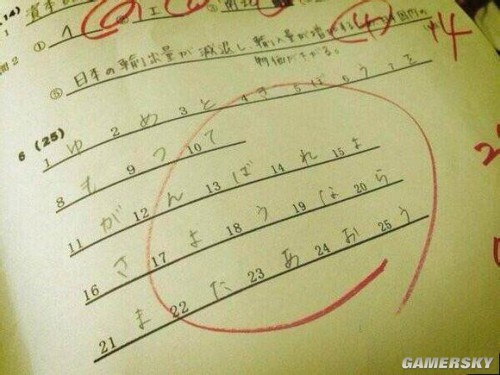 14)
① ② エ ③
⑤ 日本の輸出量が減退し、輸入量が 国内の
物価が下がる。
+4
6 (25)
1 ゆ 2 め 3 と 4 き 5 ぼ 6 う 7 を
8 も 9 つ 10 て
11 が 12 ん 13 ば 14 れ 15 よ
16 さ 17 よ 18 う 19 な 20 ら
21 ま 22 た 23 あ 24 お 25 う
GAMERSKY